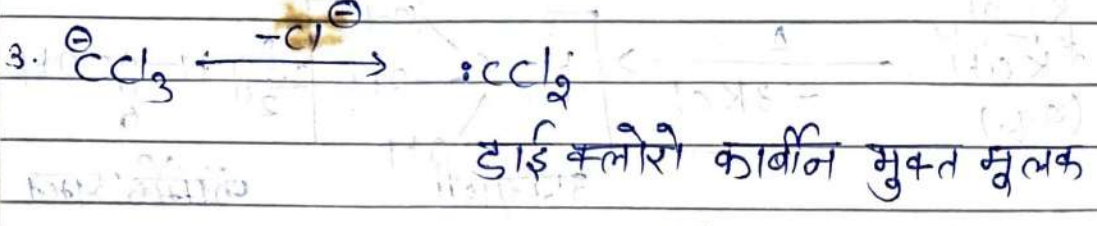 3. ⊖CCl₃ —(-Cl⊖)→ :CCl₂
डाई क्लोरो कार्बीन मुक्त मूलक